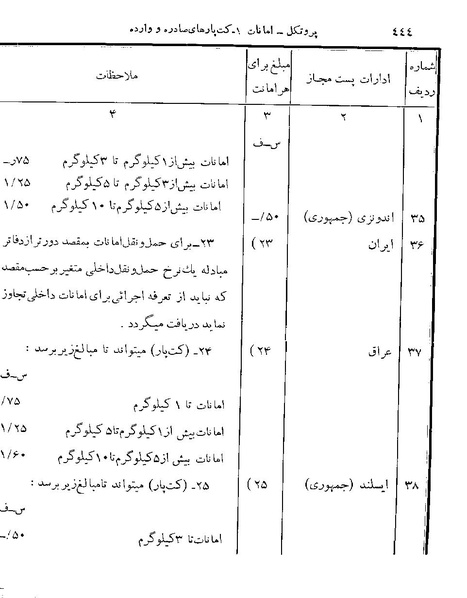 ۴۴۴ پروتکل ــ امانات ۱ـکت‌پارهای‌صادره و وارده
شماره ردیف ادارات پست مجاز مبلغ برای هر امانت ملاحظات
۱ ۲ ۳ ۴
س‌ــ‌ف
امانات بیش‌از۱کیلوگرم تا ۳کیلوگرم ۷۵رــ
امانات بیش‌از۳کیلوگرم تا ۵کیلوگرم ۱/۲۵
امانات بیش‌از۵کیلوگرم‌تا ۱۰ کیلوگرم ۱/۵۰
۳۵ اندونزی (جمهوری) ۵۰/ــ
۳۶ ایران ۲۳) ۲۳ــبرای حمل‌ونقل‌امانات بمقصد دورتر از دفاتر
مبادله یك‌نرخ حمل‌ونقل‌داخلی متغیر بر حسب‌مقصد
که نباید از تعرفه اجرائی برای امانات داخلی تجاوز
نماید دریافت میگردد .
۳۷ عراق ۲۴) ۲۴ــ (کت‌پار) میتواند تا مبالغ‌زیر برسد :
س‌ــ‌ف
امانات تا ۱ کیلوگرم /۷۵
امانات‌بیش از۱کیلوگرم‌تا۵ کیلوگرم ۱/۲۵
امانات بیش از۵کیلوگرم‌تا۱۰کیلوگرم ۱/۶۰
۳۸ ایسلند (جمهوری) ۲۵) ۲۵ــ (کت‌پار) میتواند تامبالغ‌زیر برسد :
س‌ــ‌ف
امانات‌تا ۳کیلوگرم ۵۰/ــ